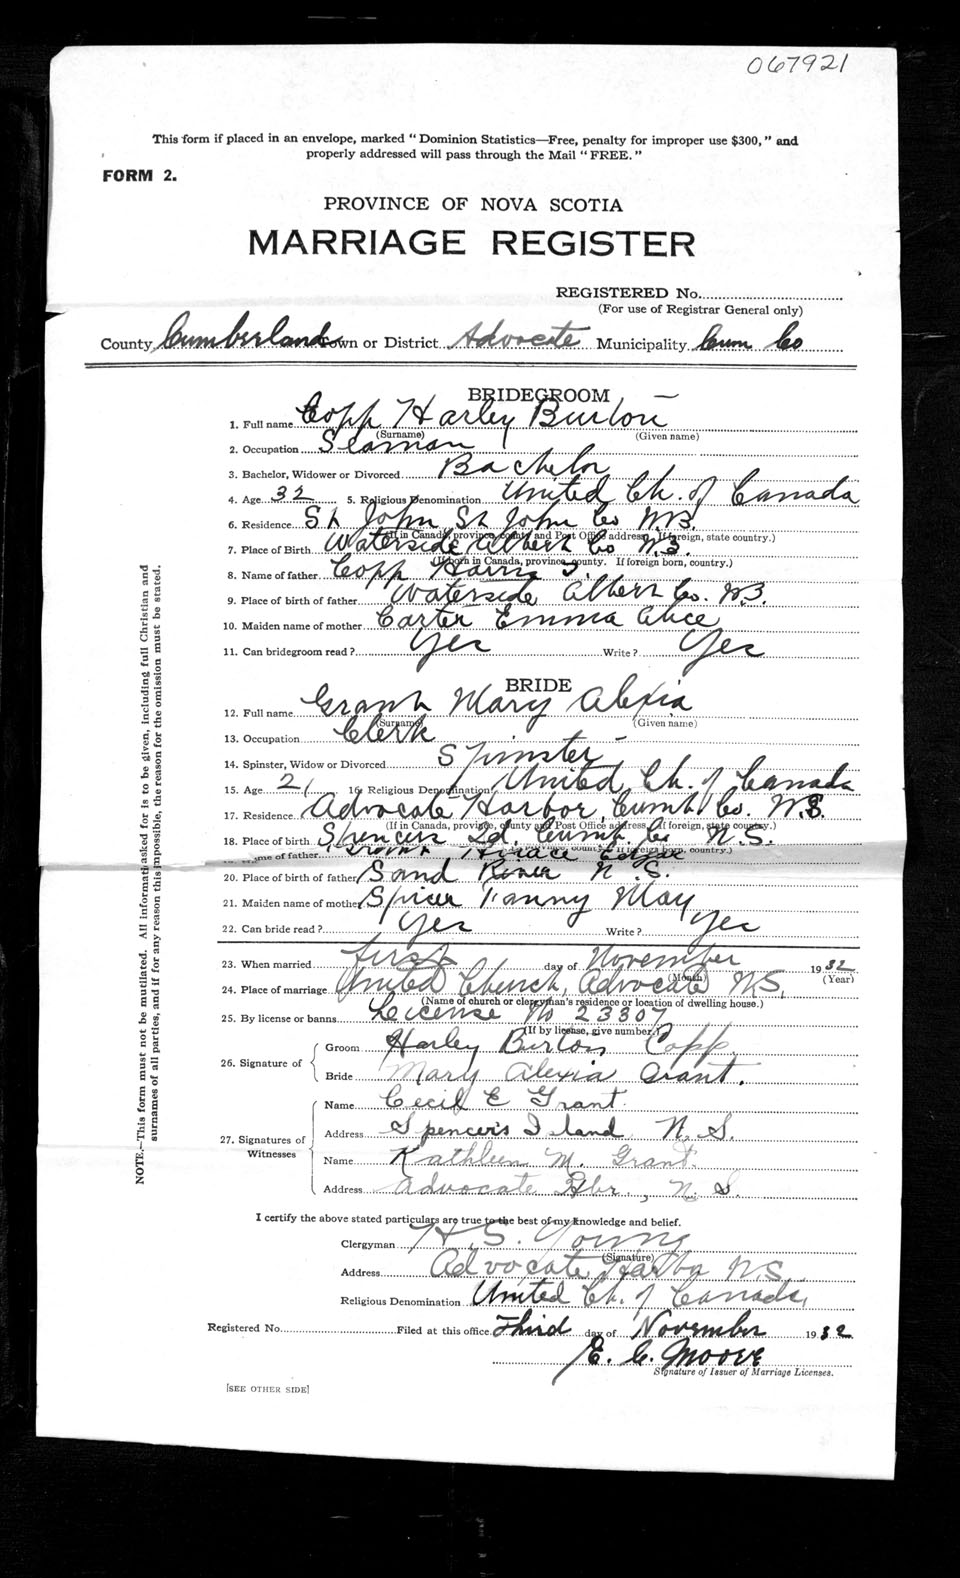 067921
This form if placed in an envelope, marked "Dominion Statistics—Free, penalty for improper use $300," and
properly addressed will pass through the Mail "FREE."
FORM 2.
PROVINCE OF NOVA SCOTIA
MARRIAGE REGISTER
REGISTERED No.
(For use of Registrar General only)
County Cumberland Town or District Advocate Municipality Cum Co
BRIDEGROOM
1. Full name Copp Harley Burton
(Surname) (Given name)
2. Occupation Seaman
3. Bachelor, Widower or Divorced Bachelor
4. Age 32 5. Religious Denomination United Ch. of Canada
6. Residence St John St John Co N.B.
(If in Canada, province, county and Post Office address. If foreign, state country.)
7. Place of Birth Waterside Albert Co N.B.
(If born in Canada, province, county. If foreign born, country.)
8. Name of father Copp
9. Place of birth of father Waterside Albert Co. N.B.
10. Maiden name of mother Carter Emma Alice
11. Can bridegroom read? Yes Write? Yes
BRIDE
12. Full name Grant Mary Alexia
(Surname) (Given name)
13. Occupation Clerk
14. Spinster, Widow or Divorced Spinster
15. Age 21 16. Religious Denomination United Ch. of Canada
17. Residence Advocate Harbor, Cumb. Co. N.S.
(If in Canada, province, county and Post Office address. If foreign, state country.)
18. Place of birth Spencers Id. Cumb. Co N.S.
me of father Grant Horace Edgar
20. Place of birth of father Sand River N.S.
21. Maiden name of mother Spicer Fanny May
22. Can bride read? Yes Write? Yes
23. When married first day of November 1932
(Month) (Year)
24. Place of marriage United Church, Advocate N.S.
(Name of church or clergyman's residence or location of dwelling house.)
25. By license or banns License No 23307
(If by license, give number.)
26. Signature of Groom Harley Burton Copp
Bride Mary Alexia Grant.
27. Signatures of Witnesses Name Cecil E Grant
Address Spencer's Island N.S.
Name Kathleen M. Grant.
Address Advocate Hbr., N.S.
I certify the above stated particulars are true to the best of my knowledge and belief.
Clergyman H. S. Young
(Signature)
Address Advocate Harbor N.S.
Religious Denomination United Ch. of Canada,
Registered No. Filed at this office Third day of November 1932
E. C. Moore
Signature of Issuer of Marriage Licenses.
[SEE OTHER SIDE]
NOTE.—This form must not be mutilated. All information asked for is to be given, including full Christian and
surnames of all parties, and if for any reason this impossible, the reason for the omission must be stated.